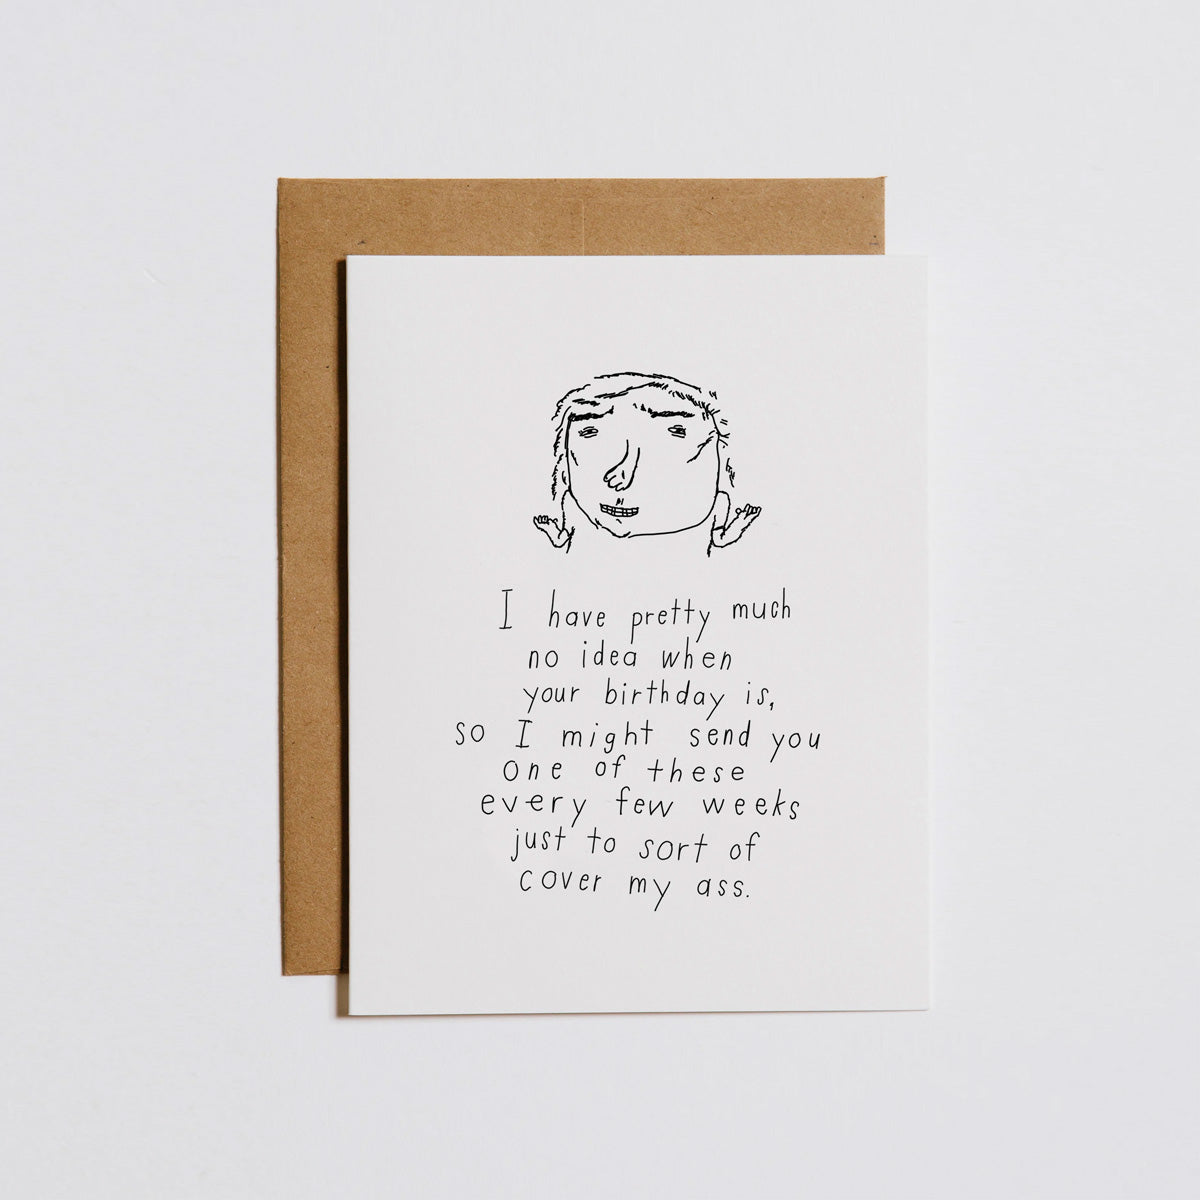 I have pretty much
no idea when
your birthday is,
so I might send you
one of these
every few weeks
just to sort of
cover my ass.